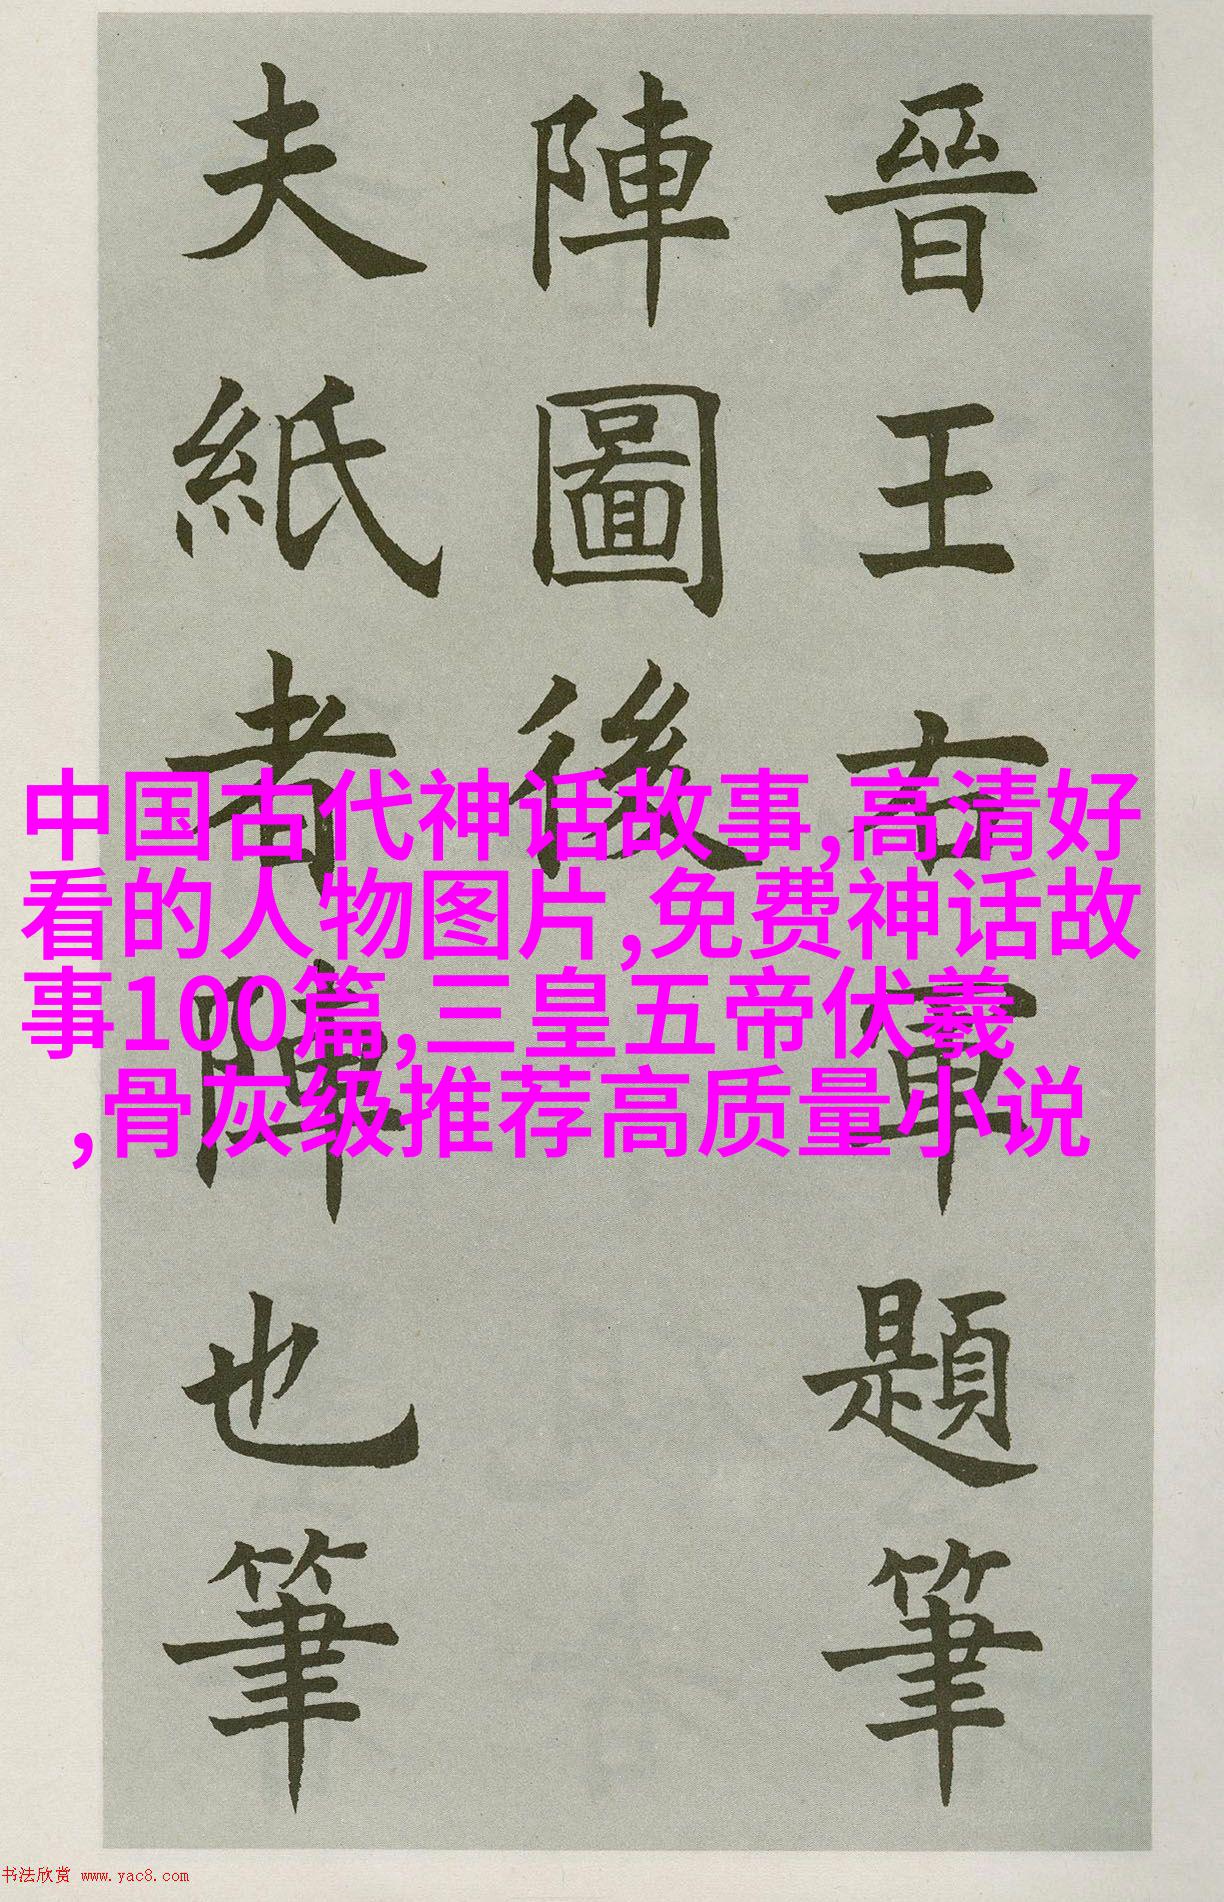 晉王右軍題筆
陣圖後
夫紙者陣也筆
中国古代神话故事,高清好
看的人物图片,免费神话故
事100篇,三皇五帝伏羲
,骨灰级推荐高质量小说
书法欣赏 www.yac8.com